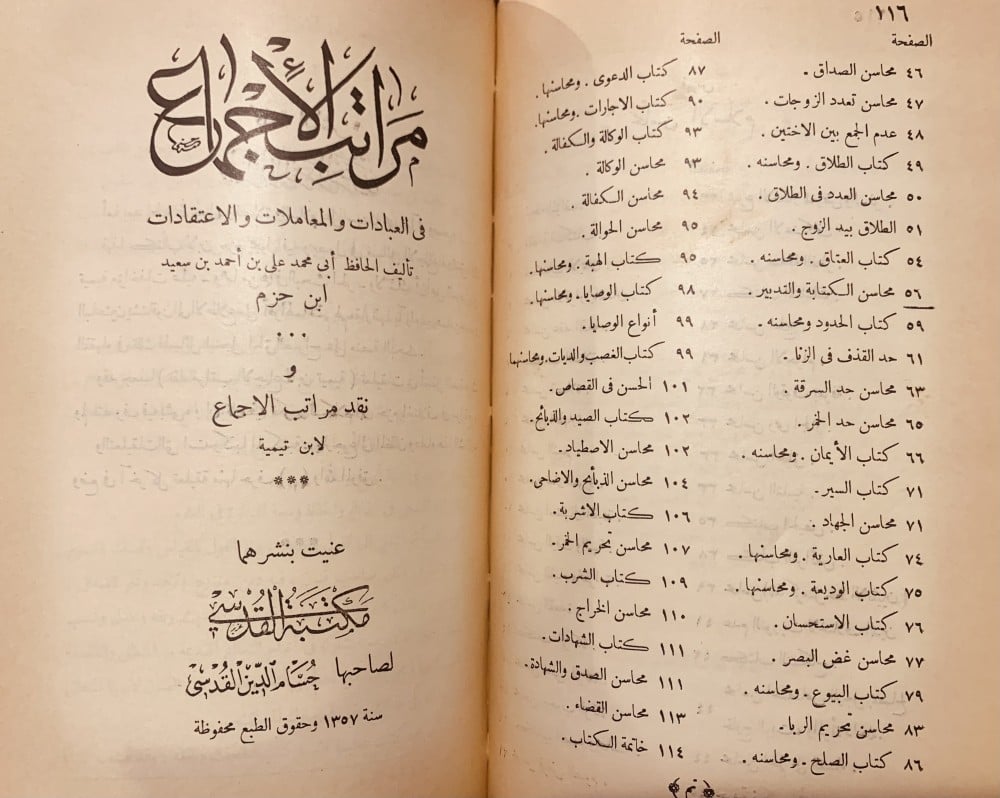 ١١٦
الصفحة
٤٦ محاسن الصداق .
٤٧ محاسن تعدد الزوجات .
٤٨ عدم الجمع بين الاختين .
٤٩ كتاب الطلاق . ومحاسنه .
٥٠ محاسن العدد فى الطلاق .
٥١ الطلاق بيد الزوج .
٥٤ كتاب العتاق . ومحاسنه .
٥٦ محاسن الكتابة والتدبير .
٥٩ كتاب الحدود ومحاسنه .
٦١ حد القذف فى الزنا .
٦٣ محاسن حد السرقة .
٦٥ محاسن حد الخمر .
٦٦ كتاب الأيمان . ومحاسنه .
٧١ كتاب السير .
٧١ محاسن الجهاد .
٧٤ كتاب العارية . ومحاسنها .
٧٥ كتاب الوديعة . ومحاسنها .
٧٦ كتاب الاستحسان .
٧٧ محاسن غض البصر .
٧٩ كتاب البيوع . ومحاسنه .
٨٣ محاسن تحريم الربا .
٨٦ كتاب الصلح . ومحاسنه .
الصفحة
٨٧ كتاب الدعوى . ومحاسنها .
٩٠ كتاب الاجارات . ومحاسنها .
٩٣ كتاب الوكالة والكفالة .
٩٣ محاسن الوكالة .
٩٤ محاسن الكفالة .
٩٥ محاسن الحوالة .
٩٥ كتاب الهبة . ومحاسنها .
٩٨ كتاب الوصايا . ومحاسنها .
٩٩ أنواع الوصايا .
٩٩ كتاب الغصب والديات . ومحاسنهما
١٠١ الحسن فى القصاص .
١٠٢ كتاب الصيد والذبائح .
١٠٢ محاسن الاصطياد .
١٠٤ محاسن الذبائح والاضاحى .
١٠٦ كتاب الاشربة .
١٠٧ محاسن تحريم الخمر .
١٠٩ كتاب الشرب .
١١٠ محاسن الخراج .
١١١ كتاب الشهادات .
١١١ محاسن الصدق والشهادة .
١١٣ محاسن القضاء .
١١٤ خاتمة الكتاب .
﴿ تم ﴾
مراتب الإجماع
فى العبادات والمعاملات والاعتقادات
تأليف الحافظ أبي محمد على بن أحمد بن سعيد
ابن حزم
و
نقد مراتب الاجماع
لابن تيمية
***
عنيت بنشرهما
مكتبة القدسي
لصاحبها حسام الدين القدسي
سنة ١٣٥٧ وحقوق الطبع محفوظة